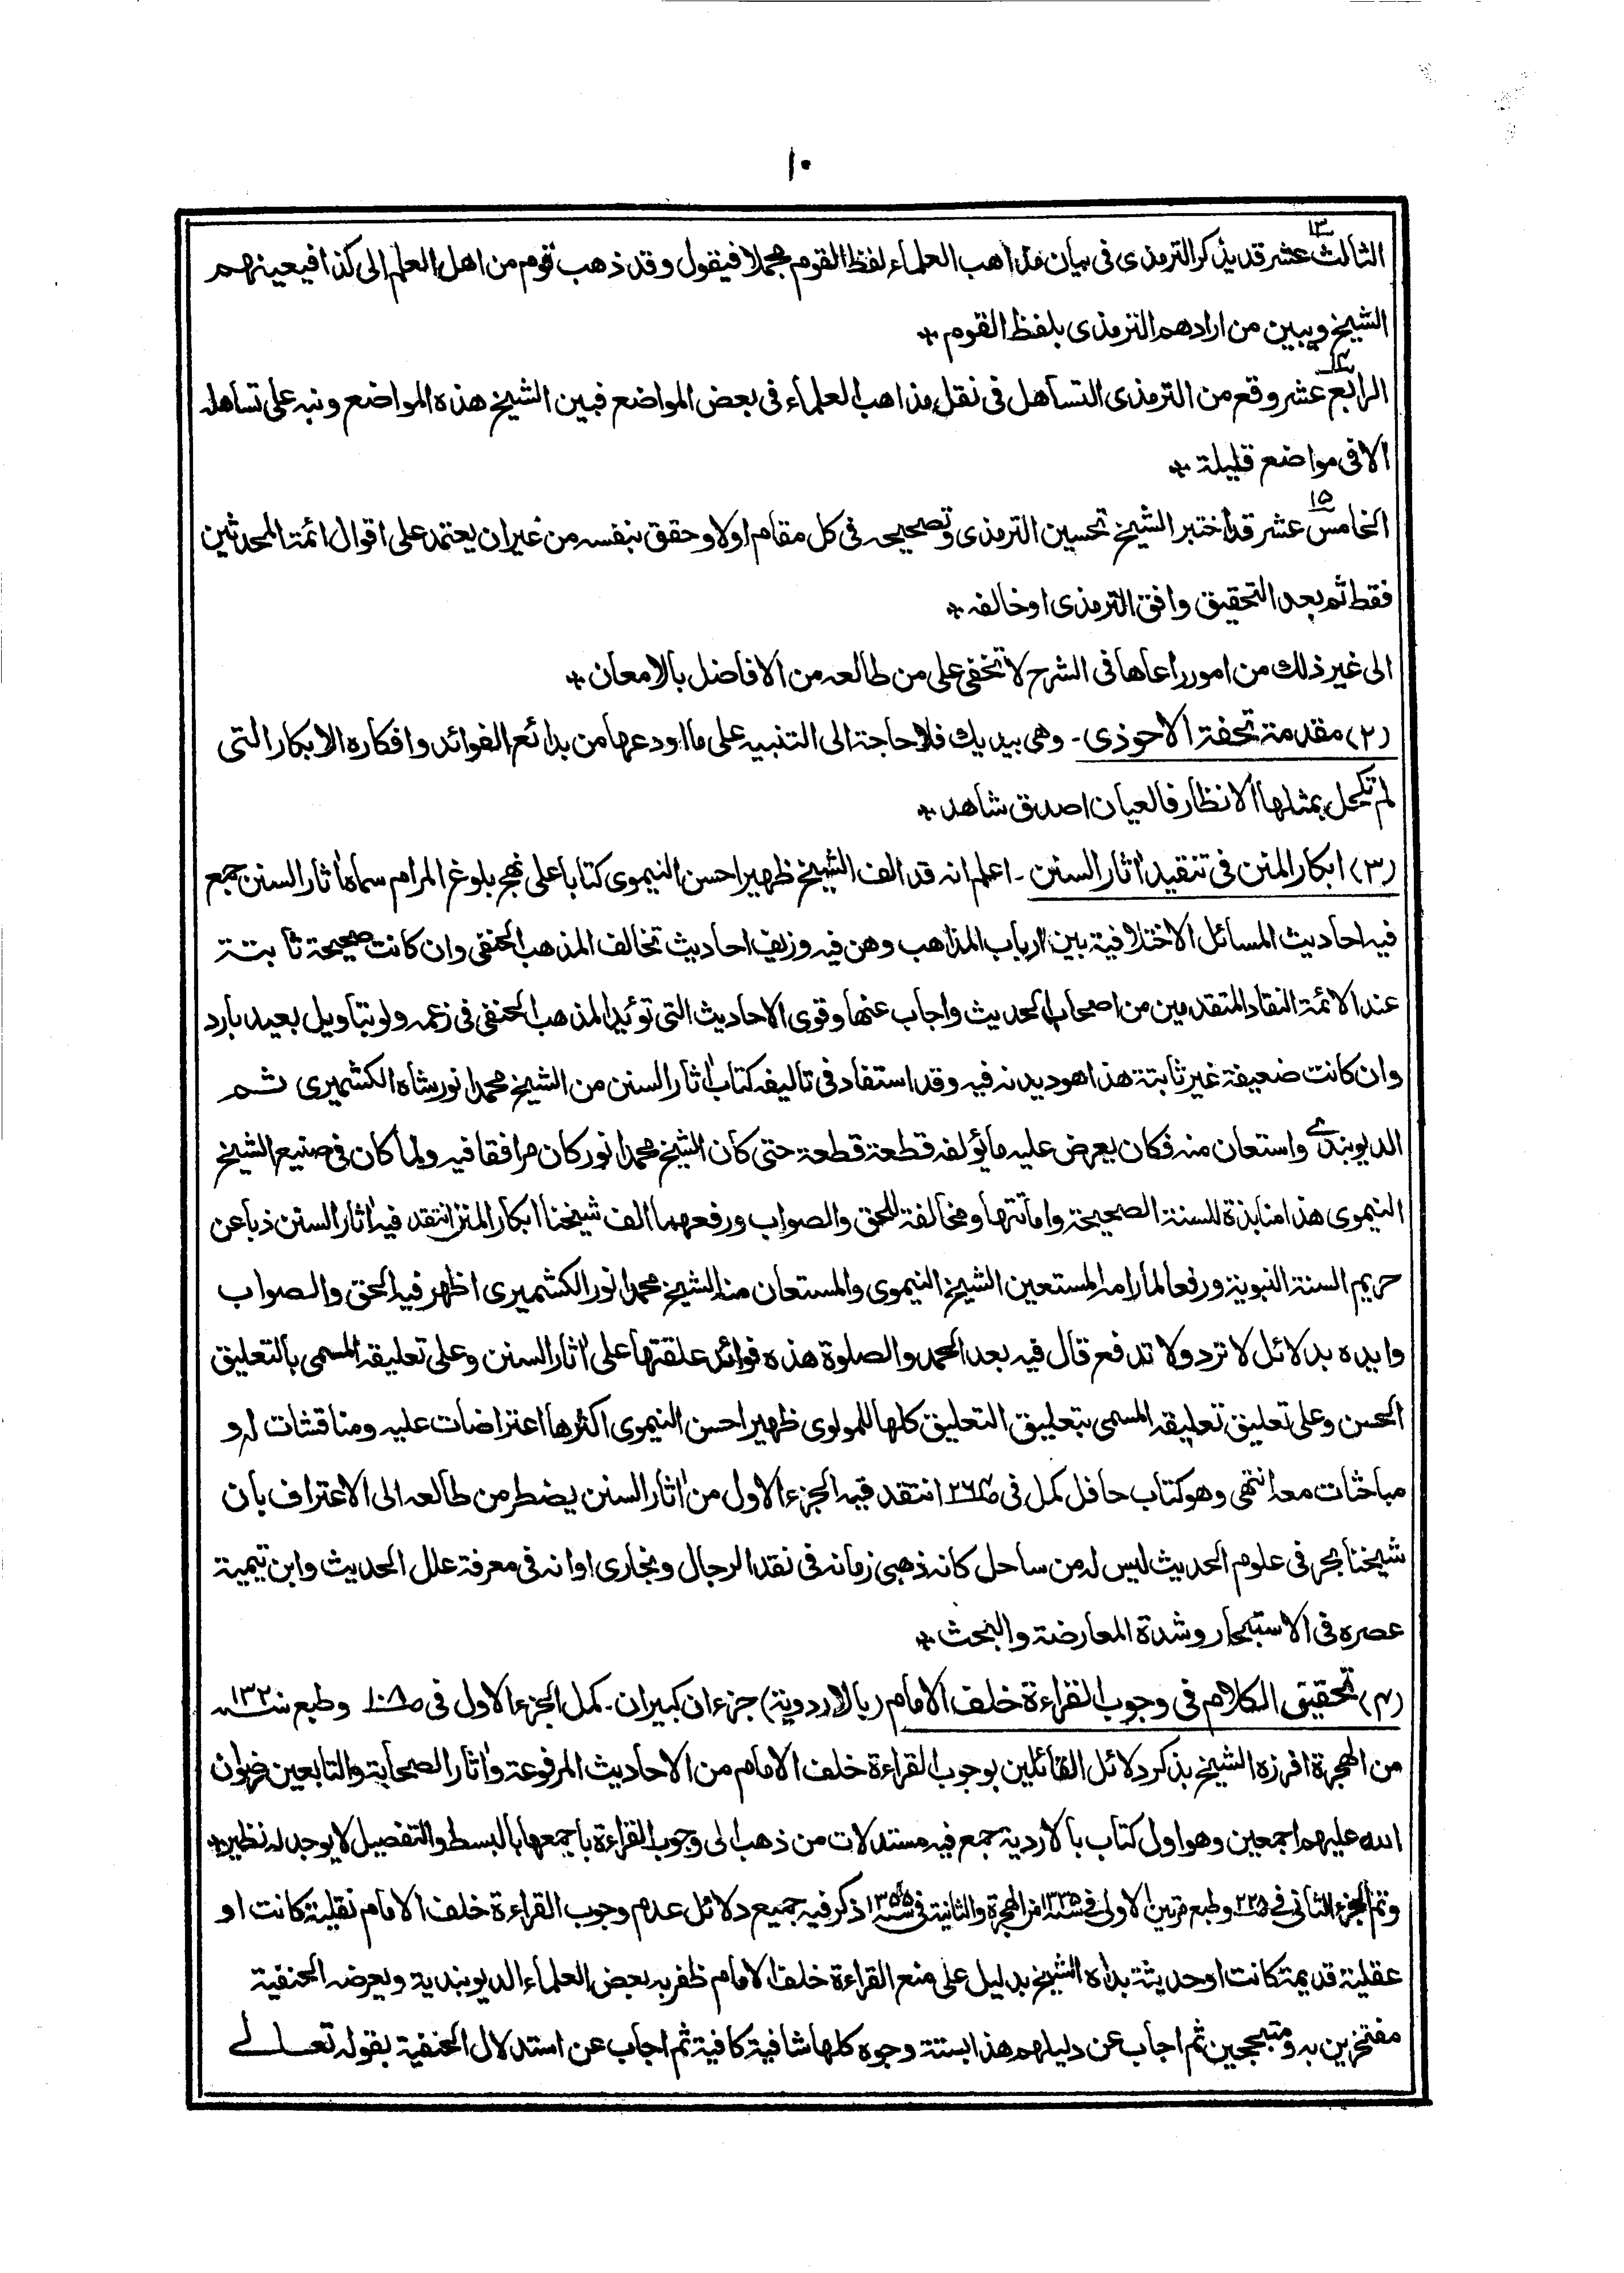 ١٠
١٣
الثالث عشر قد يذكر الترمذى فى بيان مذاهب العلماء لفظ القوم مجملا فيقول وقد ذهب قوم من اهل العلم الى كذا فيعينهم
الشيخ ويبين من ارادهم الترمذى بلفظ القوم *
١٤
الرابع عشر وقع من الترمذى التساهل فى نقل مذاهب العلماء فى بعض المواضع فبين الشيخ هذه المواضع ونبه على تساهله
الا فى مواضع قليلة *
١٥
الخامس عشر قد اختبر الشيخ تحسين الترمذى وتصحيحه فى كل مقام اولا وحقق بنفسه من غير ان يعتمد على اقوال ائمة المحدثين
فقط ثم بعد التحقيق وافق الترمذى او خالفه *
الى غير ذلك من امور راعاها فى الشرح لا تخفى على من طالعه من الافاضل بالامعان *
(٢) مقدمة تحفة الاحوذى - وهى بيديك فلا حاجة الى التنبيه على ما اودعها من بدائع الفوائد وافكاره الابكار التى
لم تكحل بمثلها الانظار فالعيان اصدق شاهد *
(٣) ابكار المنن فى تنقيد اٰثار السنن - اعلم انه قد الف الشيخ ظهير احسن النيموى كتابا على نهج بلوغ المرام سماه اٰثار السنن جمع
فيه احاديث المسائل الاختلافية بين ارباب المذاهب وهن فيه وزيف احاديث تخالف المذهب الحنفى وان كانت صحيحة ثابتة
عند الائمة النقاد المتقدمين من اصحاب الحديث واجاب عنها وقوى الاحاديث التى تؤيد المذهب الحنفى فى زعمه ولو بتأويل بعيد بارد
وان كانت ضعيفة غير ثابتة هذا هو ديدنه فيه وقد استفاد فى تاليفه كتاب اٰثار السنن من الشيخ محمد انور شاه الكشميرى ثم
الديوبندى واستعان منه فكان يعرض عليه ما يؤلفه قطعة قطعة حتى كان الشيخ محمد انور كان مرافقا فيه ولما كان فى صنيع الشيخ
النيموى هذا منابذة للسنة الصحيحة واماتتها ومخالفة للحق والصواب ورفعهما الف شيخنا ابكار المنن انتقد فيه اٰثار السنن ذبا عن
حريم السنة النبوية ورفعا لما رامه المستعين الشيخ النيموى والمستعان منه الشيخ محمد انور الكشميرى اظهر فيه الحق والصواب
وايده بدلائل لا ترد ولا تدفع قال فيه بعد الحمد والصلوة هذه فوائد علقتها على اٰثار السنن وعلى تعليقه المسمى بالتعليق
الحسن وعلى تعليق تعليقه المسمى بتعليق التعليق كلها للمولوى ظهير احسن النيموى اكثرها اعتراضات عليه ومناقشات له و
مباحثات معه انتهى وهو كتاب حافل كمل فى ص٢٦٤ انتقد فيه الجزء الاول من اٰثار السنن يضطر من طالعه الى الاعتراف بان
شيخنا بحر فى علوم الحديث ليس له من ساحل كانه ذهبى زمانه فى نقد الرجال وبخارى اوانه فى معرفة علل الحديث وابن تيمية
عصره فى الاستبحار وشدة المعارضة والبحث *
(٤) تحقيق الكلام فى وجوب القراءة خلف الامام (بالاردوية) جزءان كبيران - كمل الجزء الاول فى وطبع
من الهجرة افرزه الشيخ بذكر دلائل القائلين بوجوب القراءة خلف الامام من الاحاديث المرفوعة واٰثار الصحابة والتابعين رضوان
الله عليهم اجمعين وهو اول كتاب بالاردية جمع فيه مستدلات من ذهب الى وجوب القراءة باجمعها بالبسط والتفصيل لا يوجد له نظير *
وتم الجزء الثانى فى وطبع مرتين الاولى فى سنة ١٣٣٥ من الهجرة والثانية فى سنة ١٣٥٥ ذكر فيه جميع دلائل عدم وجوب القراءة خلف الامام نقلية كانت او
عقلية قديمة كانت او حديثة بداه الشيخ بدليل على منع القراءة خلف الامام ظفر به بعض العلماء الديوبندية ويعرضه الحنفية
مفتخرين به ومتبجحين ثم اجاب عن دليلهم هذا بستة وجوه كلها شافية كافية ثم اجاب عن استدلال الحنفية بقوله تعالى